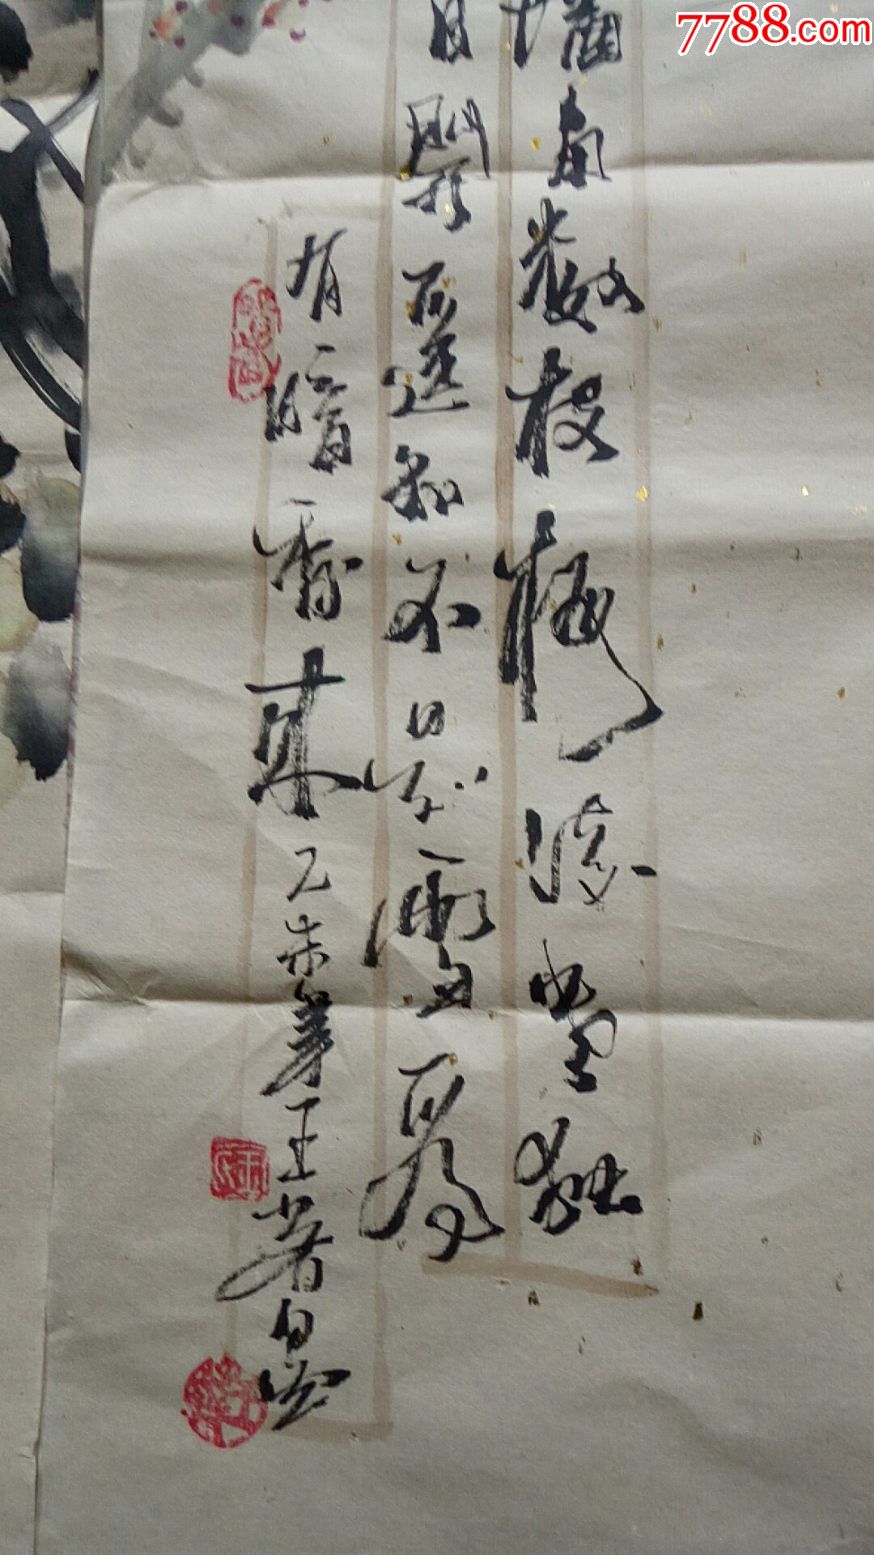 7788.com
墙角数枝梅凌寒独
自開遥知不是雪為
有暗香来乙未年王